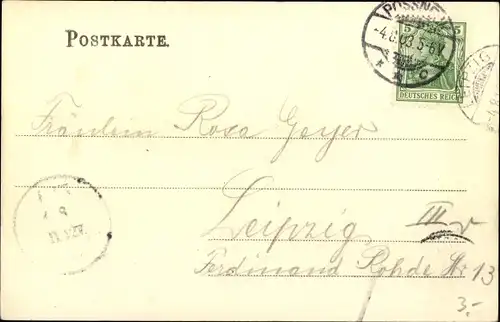 POSTKARTE.
PÖSSNE
-4.6.03.5-6N.
* * C
5 5
DEUTSCHES REICH
Fräulein Rosa Geyer
Leipzig III r
Ferdinand Rohde Str 13
3,-